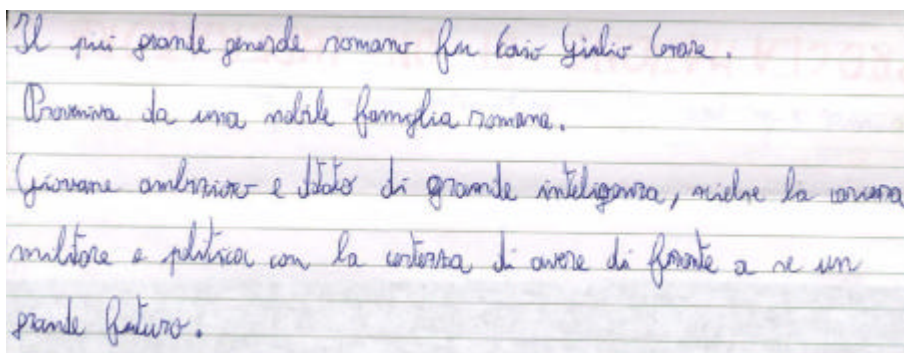 Il più grande generale romano fu Caio Giulio Cesare.
Proveniva da una nobile famiglia romana.
Giovane ambizioso e dotato di grande inteligenza, scelse la carriera
militare e politica con la certezza di avere di fronte a se un
grande futuro.